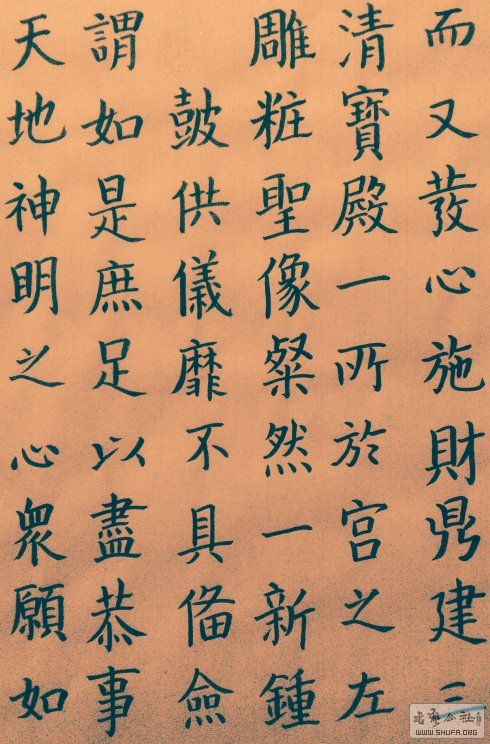 而又發心施財鼎建三
清寶殿一所於宮之左
雕粧聖像粲然一新鍾
鼓供儀靡不具俻僉
謂如是庶足以盡恭事
天地神明之心衆願如
WWW.SHUFA.ORG